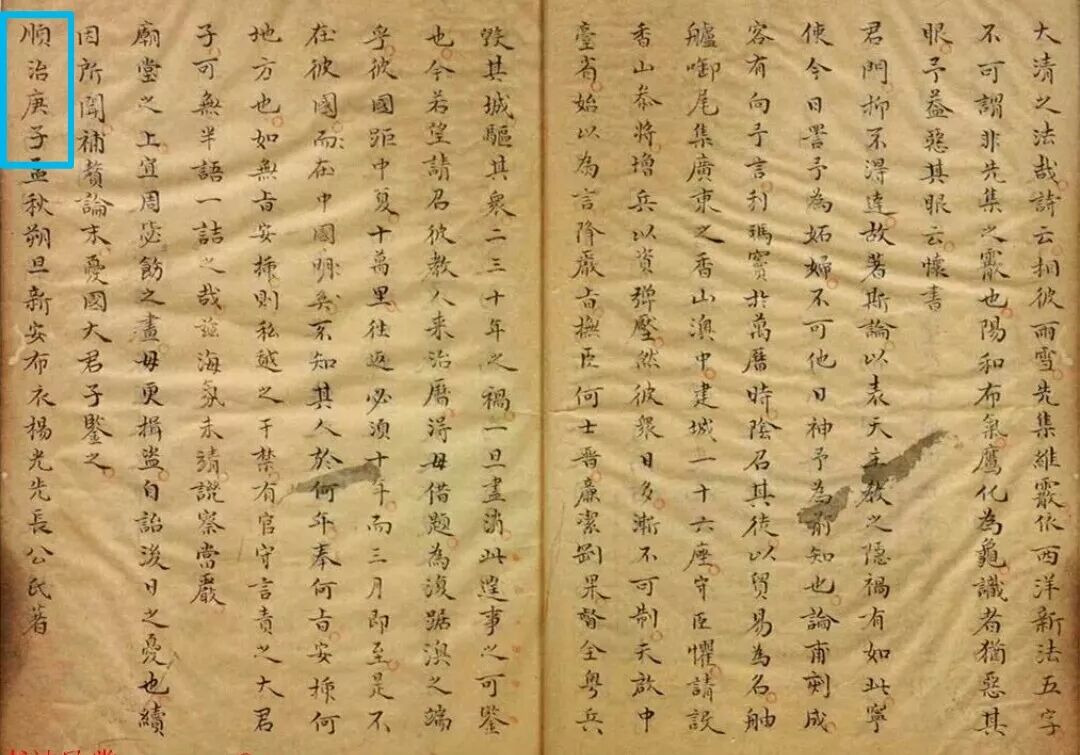 大清之法哉詩云相彼雨雪先集維霰依西洋新法五字
不可謂非先集之霰也陽和布氣鷹化為鳩識者猶惡其
眼予益惡其眼云懷書
君門抑不得達故著斯論以表天主教之隱禍有如此寧
使今日詈予為妬婦不可他日神予為前知也論甫刻成
客有向予言利瑪竇於萬曆時陰召其徒以貿易為名舳
艫啣尾集廣東之香山澳中建城一十六座守臣懼請設
香山叅將增兵以資彈壓然彼眾日多漸不可制天啟中
臺省始以為言降嚴旨撫臣何士晋廉潔剛果督全粤兵
毀其城驅其衆二三十年之禍一旦盡消此逞事之可鑒
也今若望請召彼教人来治曆得毋借題為復踞澳之端
乎彼國距中夏十萬里往返必須十年而三月即至是不
在彼國而在中國明矣不知其人於何年奉何旨安揷何
地方也如無旨安揷則私越之干禁有官守言責之大君
子可無半語一詰之哉茲海氛未靖譏察當嚴
廟堂之上宜周宓飭之畫毋更揖盜自詒後日之憂也續
因所聞補贅論末憂國大君子鑒之
順治庚子孟秋朔旦新安布衣楊光先長公氏著